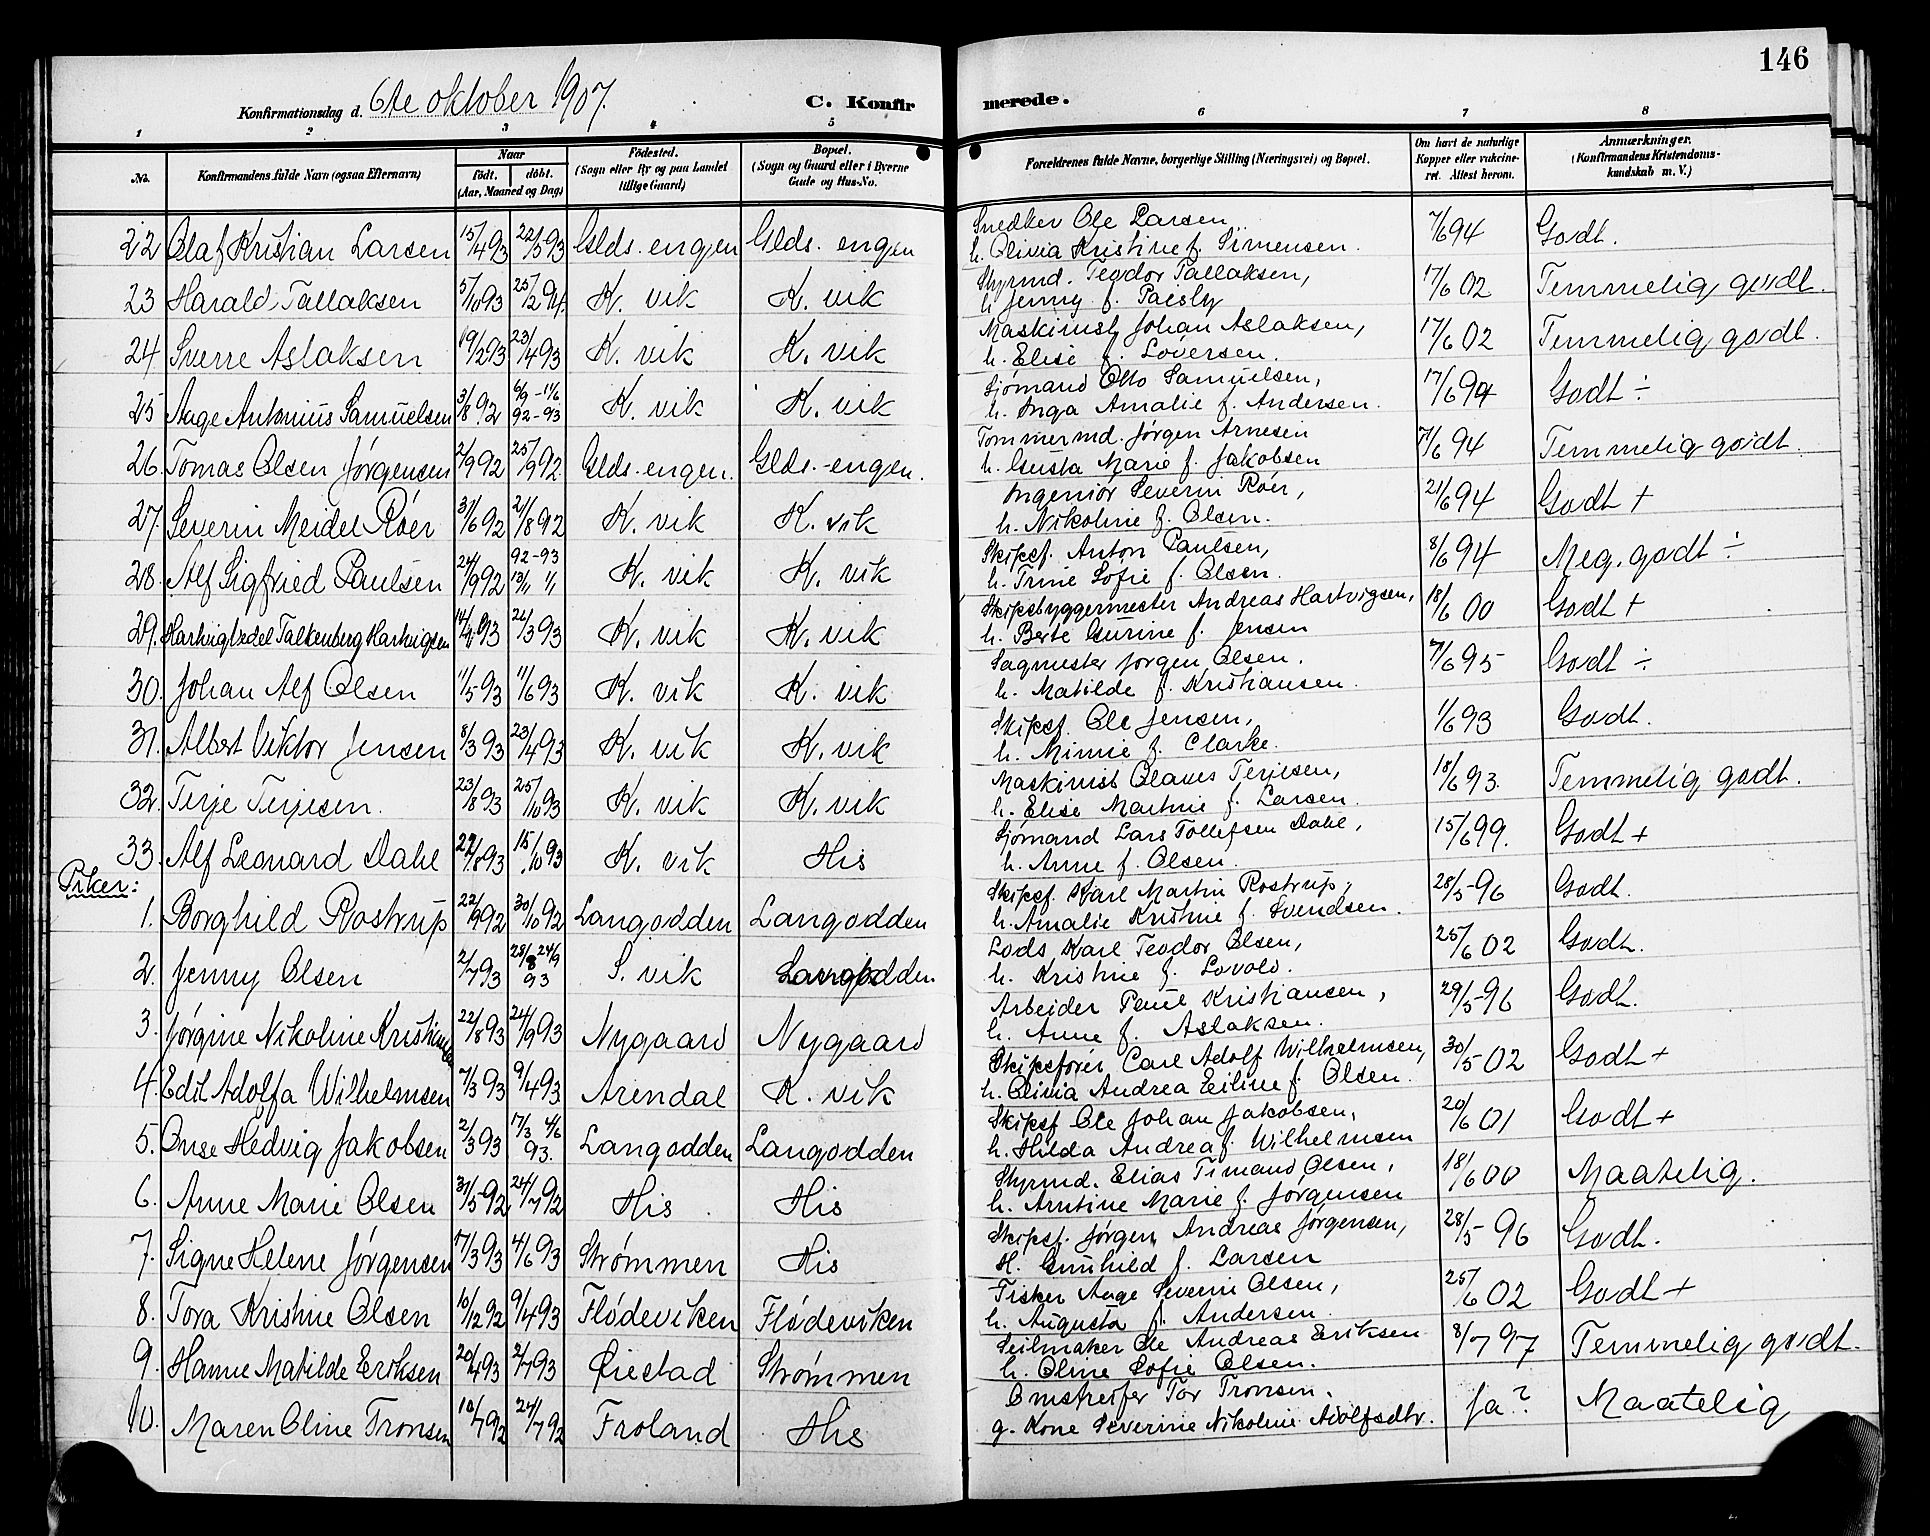 146
Konfirmationsdag d. 6te oktober 1907.
C. Konfirmerede.
1 2 3 4 5 6 7 8
No. Konfirmandens fulde Navn (ogsaa Efternavn) Naar født. døbt. (Aar, Maaned og Dag) Fødested. (Sogn eller By og paa Landet tillige Gaard) Bopæl. (Sogn og Gaard eller i Byerne Gade og Hus-No. Forældrenes fulde Navne, borgerlige Stilling (Næringsvei) og Bopæl. Om havt de naturlige Kopper eller vakcineret. Attest herom. Anmærkninger. (Konfirmandens Kristendomskundskab m. V.)
22 Olaf Kristian Larsen 15/4 93 22/5 93 Glds. engen Glds. engen Snedker Ole Larsen, h. Olivia Kristine f. Simensen. 7/6 94 Godt.
23 Harald Tallaksen 5/10 93 25/2 94. K. vik K. vik Styrmd. Teodor Tallaksen, h. Jenny f. Paisley 17/6 02 Temmelig godt.
24 Sverre Aslaksen 19/2 93 23/4 93 K. vik K. vik Maskinist Johan Aslaksen, h. Elise f. Loversen. 17/6 02 Temmelig godt.
25 Aage Antonius Samuelsen 3/8 92 6/9 - 11/6 92-93 K. vik K. vik Sjømand Otto Samuelsen, h. Inga Amalie f. Andersen. 17/6 94 Godt ÷
26. Tomas Olsen Jørgensen 2/9 92 25/9 92. Glds. engen. Glds. engen. Tømmermd. Jørgen Arnesen h. Gusta Marie f. Jakobsen 7/6 94 Temmelig godt.
27. Severin Meidel Røer 31/6 92 21/8 92 K. vik K. vik Ingeniør Severin Røer, h. Nikoline f. Olsen. 21/6 94 Godt +
28. Alf Sigfried Paulsen 24/9 92 92-93 13/11 " K. vik K. vik Skipsf. Anton Paulsen, h. Trine Sofie f. Olsen. 8/6 94 Meg. godt ÷
29. Hartvig Vedel Falkenberg Hartvigsen 14/2 93 26/3 93 K. vik K. vik Skipsbyggermester Andreas Hartvigsen, h. Berte Gurine f. Jensen 18/6 00 Godt +
30. Johan Alf Olsen 11/5 93 11/6 93 K. vik K. vik Sagmester Jørgen Olsen. h. Matilde f. Kristiansen. 7/6 95 Godt ÷
31. Albert Viktor Jensen 8/3 93 23/4 93 K. vik K. vik Skipsf. Ole Jensen, h. Minnie f. Clarke. 1/6 93 Godt.
32. Terje Terjesen. 23/8 93 25/10 93 K. vik K. vik Maskinist Olaves Terjesen, h. Elise Martine f. Larsen. 18/6 93. Temmelig godt.
33. Alf Leonard Dahl 27/8 93 15/10 93 K. vik His Sjømand Lars Tollefsen Dahl, h. Anne f. Olsen. 15/6 99. Godt +
Piker:
1. Borghild Rostrup 22/9 92 30/10 92 Langodden Langodden Skipsf. Karl Martin Rostrup, h. Amalie Kristine f. Svendsen. 28/5-96 Godt.
2. Jenny Olsen 2/7 93 28/8 24/9 93 S. vik Langodden. Lods Karl Teodor Olsen, h. Kristine f. Lovold. 25/6 02 Godt.
3. Jørgine Nikoline Kristiansen 22/8 93 24/9 93 Nygaard Nygaard Arbeider Paul Kristiansen, h. Anne f. Aslaksen. 29/5-96 Godt.
4. Edit Adolfa Wilhelmsen 7/3 93 9/4 93 Arendal K. vik Skipsfører Carl Adolf Wilhelmsen, h. Olivia Andrea Eiline f. Olsen. 30/5 02 Godt +
5. Onse Hedvig Jakobsen 2/3 93 17/3 4/6 93. Langodden Langodden Skipsf Ole Johan Jakobsen, h. Hilda Andrea f. Wilhelmsen 20/6 01 Godt +
6. Anne Marie Olsen 31/5 92 24/7 92 His His Styrmd. Elias Timand Olsen, h. Arntine Marie f. Jørgensen 18/6 00 Maatelig.
7. Signe Helene Jørgensen 17/3 93 4/6 93 Strømmen His Skipsf. Jørgen Andreas Jørgensen, H. Gunhild f. Larsen 28/5-96 Godt.
8. Tora Kristine Olsen 10/12 92 9/4 93 Flødeviken Flødeviken Fisker Aage Severin Olsen, h. Augusta f. Andersen. 25/6 02 Godt +
9. Hanne Matilde Eriksen 20/4 93 2/7 93 Øiestad Strømmen Seilmaker Ole Andreas Eriksen h. Oline Sofie Olsen. 8/7 97 Temmelig godt.
10. Maren Oline Tronsen 10/7 92 24/7 92 Froland His Omstreifer Tor Tronsen. g. Kone Severine Nikoline Adolfsdtr. Ja? Maatelig